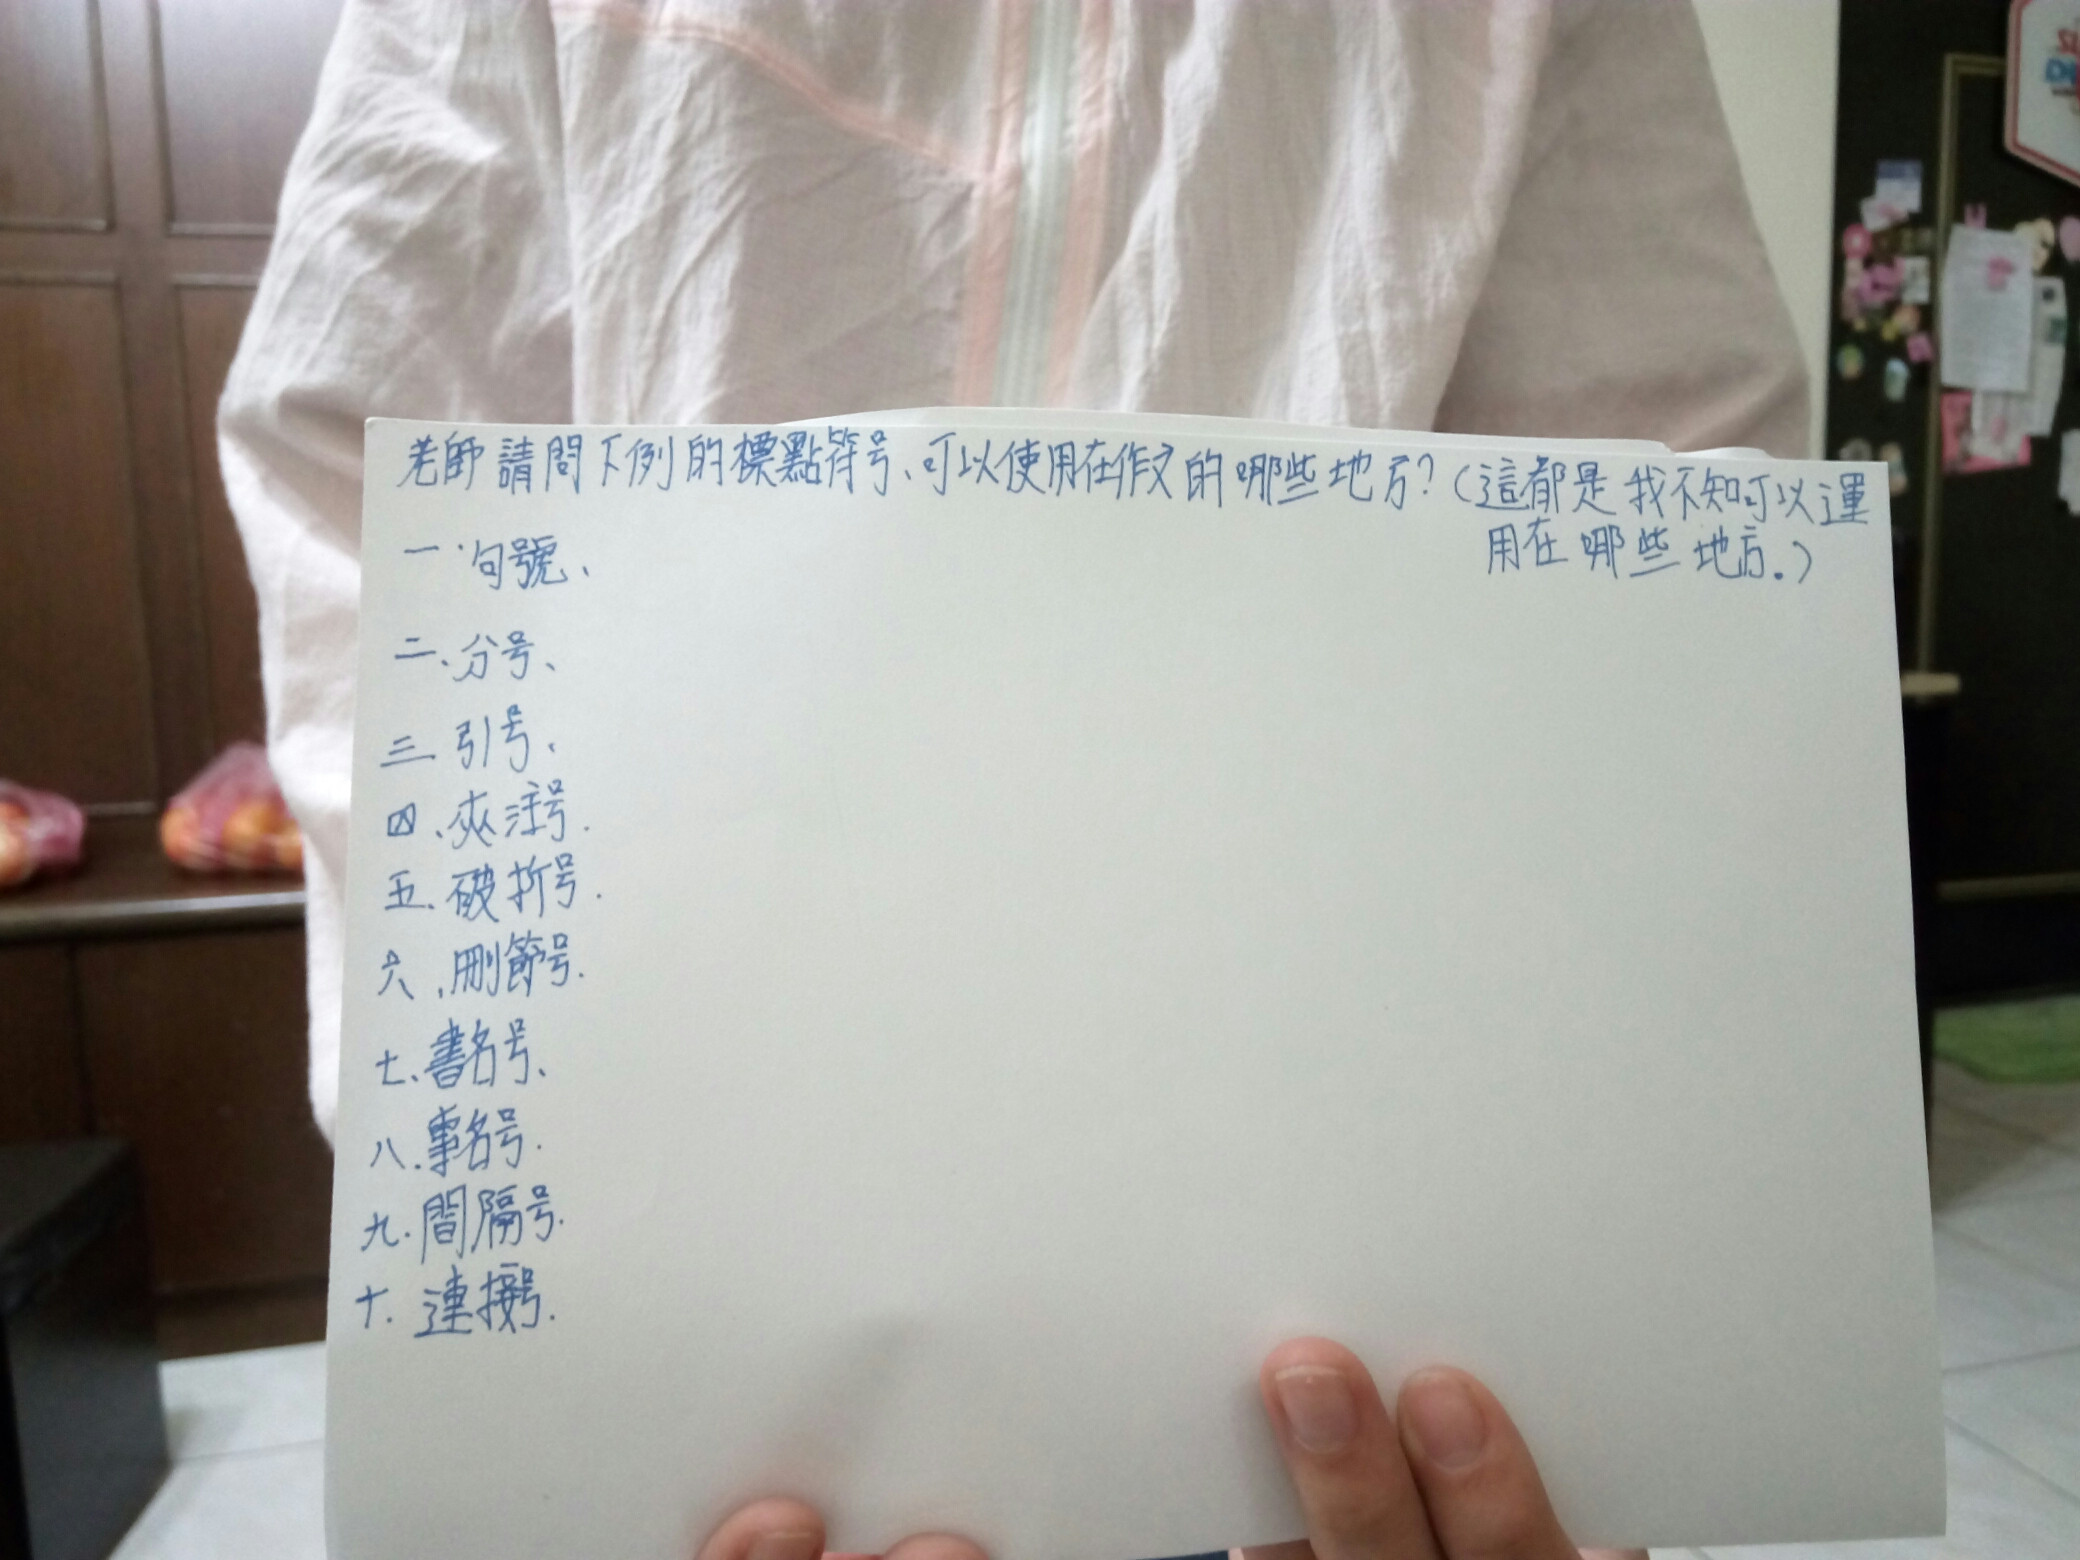 老師請問下例的標點符号、可以使用在作文的哪些地方？（這都是我不知可以運
用在哪些地方.）
一.句號、
二、分号、
三 引号、
四、夾注号.
五.破折号.
六、刪節号.
七、書名号、
八.事名号.
九.間隔号.
十.連接号.